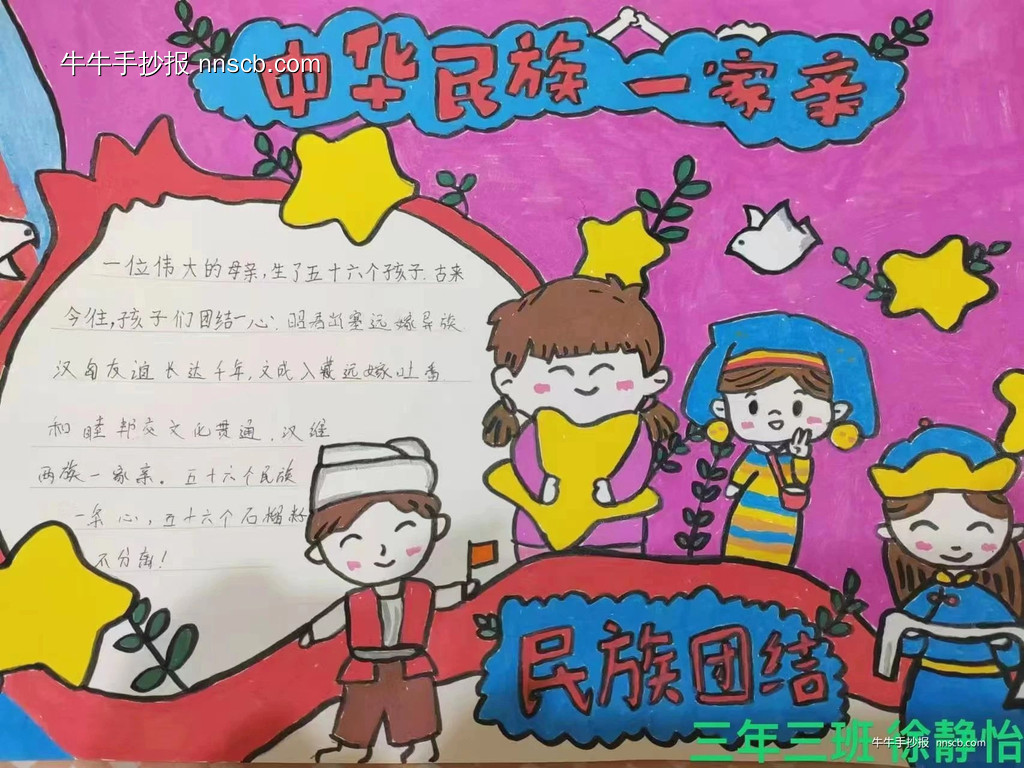 牛牛手抄报 nnscb.com
中华民族一家亲
一位伟大的母亲,生了五十六个孩子.古来
今往,孩子们团结一心.昭君出塞远嫁异族
汉匈友谊长达千年,文成入藏远嫁吐番
和睦邦交文化贯通.汉维
两族一家亲.五十六个民族
一条心,五十六个石榴籽
不分离!
民族团结
三年三班 徐静怡
牛牛手抄报 nnscb.com